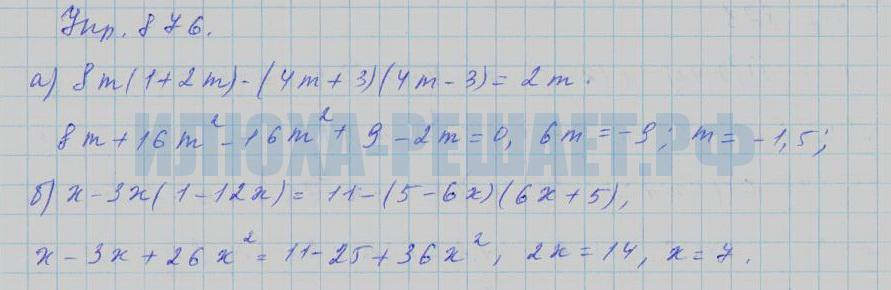 Упр. 876.
а) 8m(1+2m)-(4m+3)(4m-3)=2m.
8m+16m²-16m²+9-2m=0, 6m=-9; m=-1,5;
ИЛЮХА-РЕШАЕТ.РФ
б) x-3x(1-12x)=11-(5-6x)(6x+5),
x-3x+26x²=11-25+36x², 2x=14, x=7.